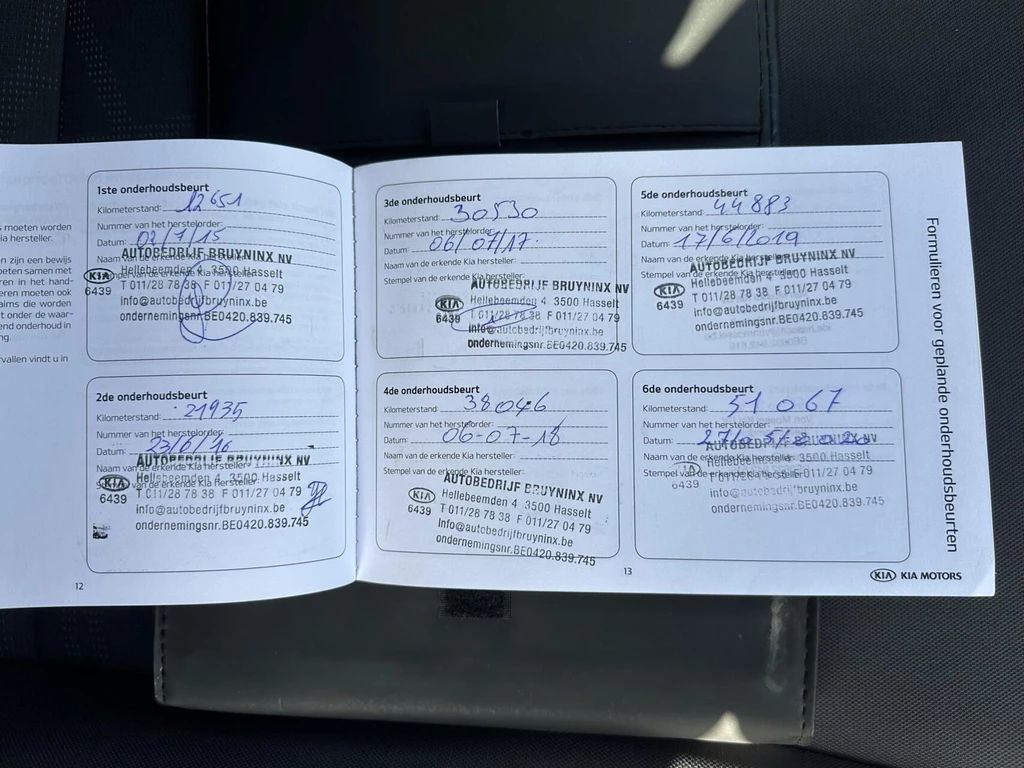 s moeten worden
ia hersteller.
en zijn een bewijs
oeten samen met
ren in het hand-
eren moeten ook
aims die worden
t onder de waar-
end onderhoud in
ng.
rvallen vindt u in
1ste onderhoudsbeurt
Kilometerstand: 12651
Nummer van het herstelorder:
Datum: 02/7/15
Naam van de erkende Kia hersteller:
Stempel van de erkende Kia hersteller:
AUTOBEDRIJF BRUYNINX NV
Hellebeemden 4 3500 Hasselt
KIA T 011/28 78 38 F 011/27 04 79
6439 info@autobedrijfbruyninx.be
ondernemingsnr.BE0420.839.745
2de onderhoudsbeurt
Kilometerstand: 21935
Nummer van het herstelorder:
Datum: 23/6/16
Naam van de erkende Kia hersteller:
Stempel van de erkende Kia hersteller:
AUTOBEDRIJF BRUYNINX NV
Hellebeemden 4 3500 Hasselt
KIA T 011/28 78 38 F 011/27 04 79
6439 info@autobedrijfbruyninx.be
ondernemingsnr.BE0420.839.745
12
3de onderhoudsbeurt
Kilometerstand: 30530
Nummer van het herstelorder:
Datum: 06/07/17
Naam van de erkende Kia hersteller:
Stempel van de erkende Kia hersteller:
AUTOBEDRIJF BRUYNINX NV
Hellebeemden 4 3500 Hasselt
KIA T 011/28 78 38 F 011/27 04 79
6439 info@autobedrijfbruyninx.be
ondernemingsnr.BE0420.839.745
4de onderhoudsbeurt
Kilometerstand: 38046
Nummer van het herstelorder:
Datum: 06-07-18
Naam van de erkende Kia hersteller:
Stempel van de erkende Kia hersteller:
AUTOBEDRIJF BRUYNINX NV
KIA Hellebeemden 4 3500 Hasselt
6439 T 011/28 78 38 F 011/27 04 79
Info@autobedrijfbruyninx.be
ondernemingsnr.BE0420.839.745
5de onderhoudsbeurt
Kilometerstand: 44883
Nummer van het herstelorder:
Datum: 17/6/2019
Naam van de erkende Kia hersteller:
Stempel van de erkende Kia hersteller:
AUTOBEDRIJF BRUYNINX NV
Hellebeemden 4 3500 Hasselt
KIA T 011/28 78 38 F 011/27 04 79
6439 info@autobedrijfbruyninx.be
ondernemingsnr.BE0420.839.745
6de onderhoudsbeurt
Kilometerstand: 51067
Nummer van het herstelorder:
Datum: 27/05/2020
Naam van de erkende Kia hersteller:
Stempel van de erkende Kia hersteller:
AUTOBEDRIJF BRUYNINX NV
Hellebeemden 4 3500 Hasselt
T 011/28 78 38 F 011/27 04 79
6439 info@autobedrijfbruyninx.be
ondernemingsnr.BE0420.839.745
13
Formulieren voor geplande onderhoudsbeurten
KIA KIA MOTORS